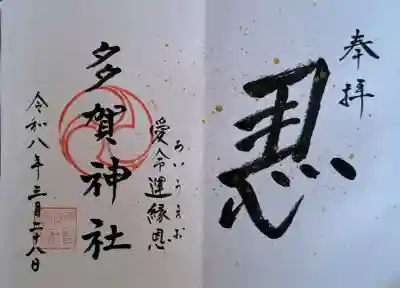 奉拝
恩
愛命運縁恩
あいうえお
多賀神社
令和八年三月二十八日